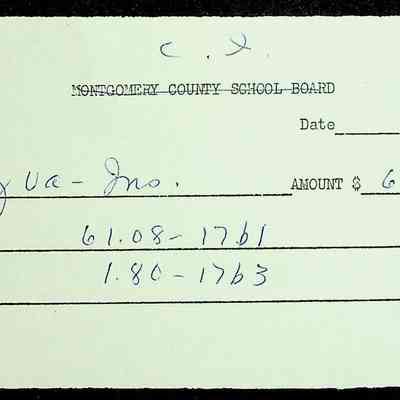 C. I.
MONTGOMERY COUNTY SCHOOL BOARD
Date
Va - Ins. AMOUNT $ 6
61.08 - 1761
1.80 - 1763